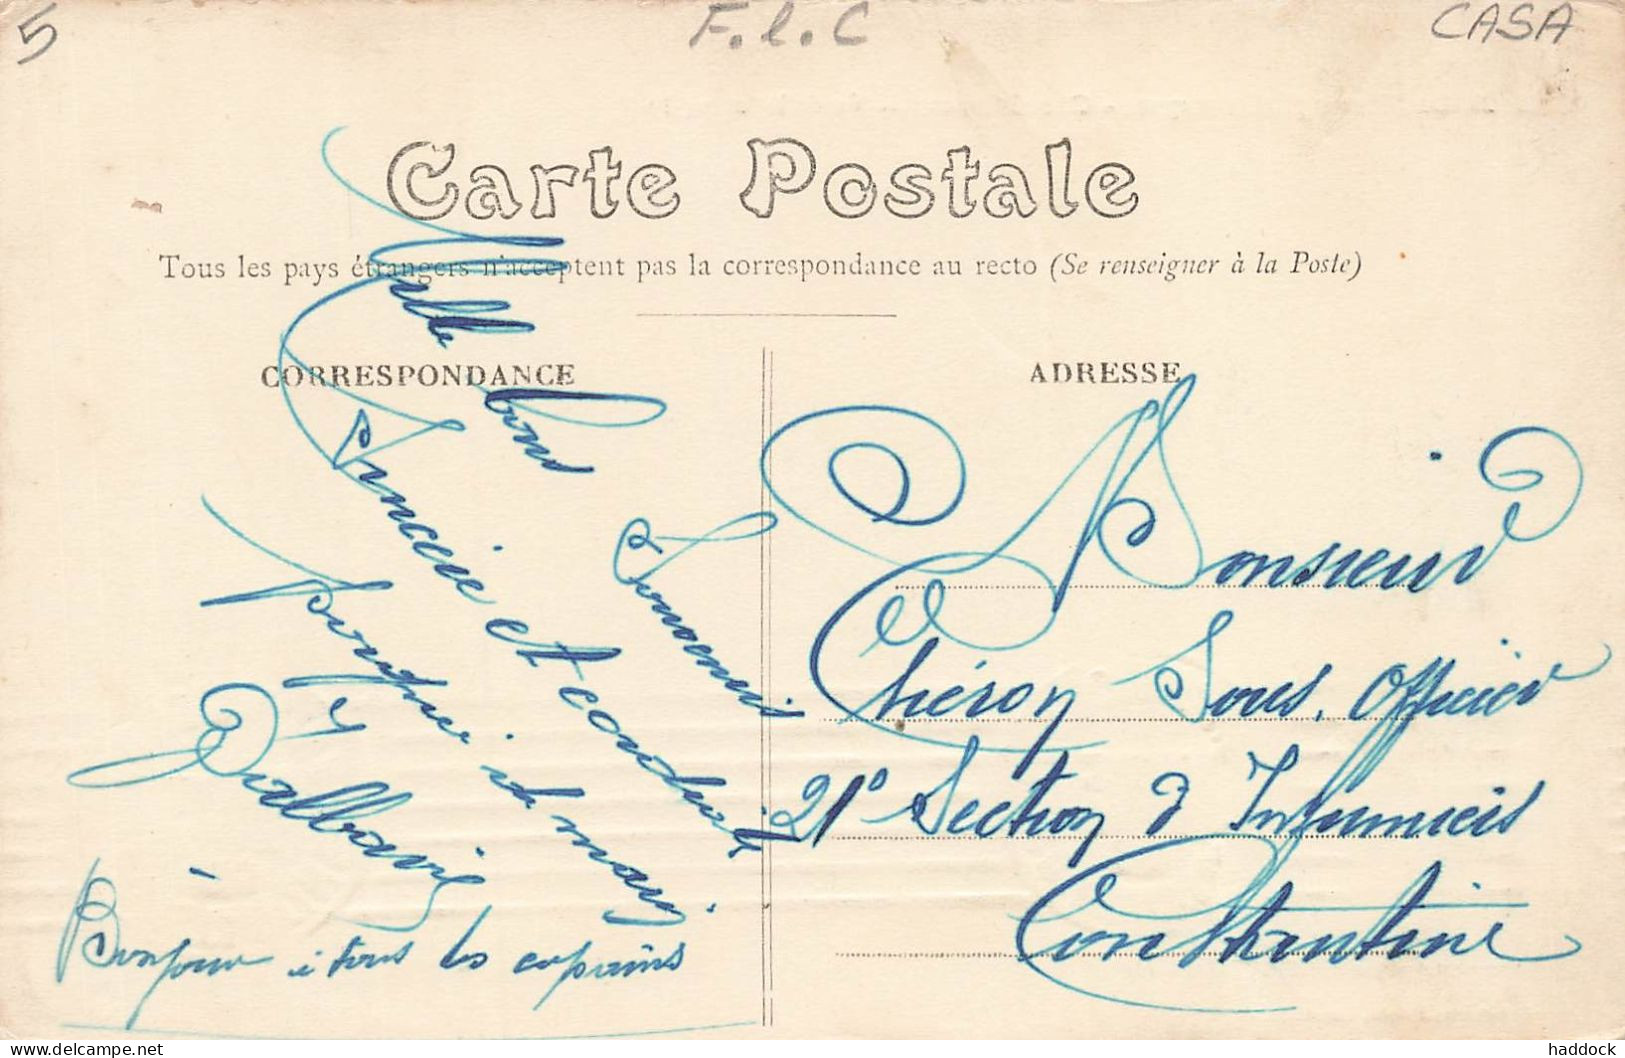 5
F. l. C
CASA
Carte Postale
Tous les pays étrangers n'acceptent pas la correspondance au recto (Se renseigner à la Poste)
CORRESPONDANCE
ADRESSE
Mille bons Souvenirs
Sincère et cordiale
poignée de main
Bonjour à tous les copains
Monsieur
Chéron Sous. Officier
21° Section d'Infirmiers
Constantine
© delcampe.net
haddock